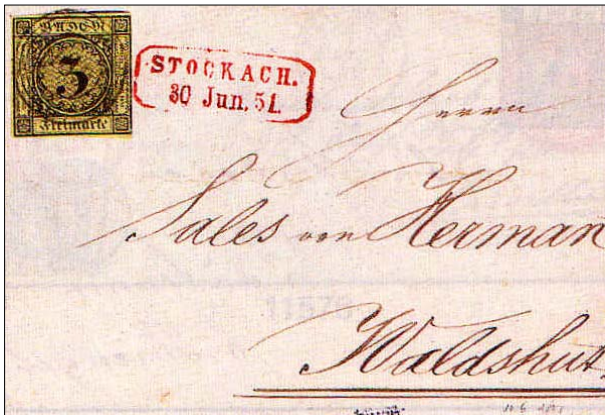 BADEN
3
Freimarke
STOCKACH.
30 Jun. 51.
Herrn
Sales von Herman
Waldshut